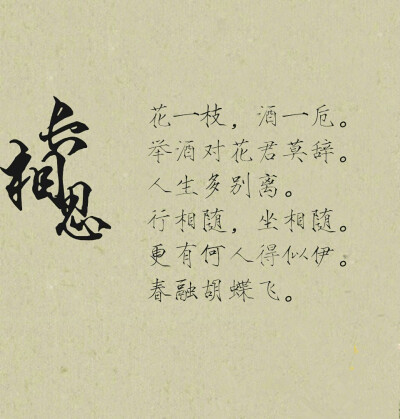 长相思
花一枝，酒一卮。
举酒对花君莫辞。
人生多别离。
行相随，坐相随。
更有何人得似伊。
春融胡蝶飞。